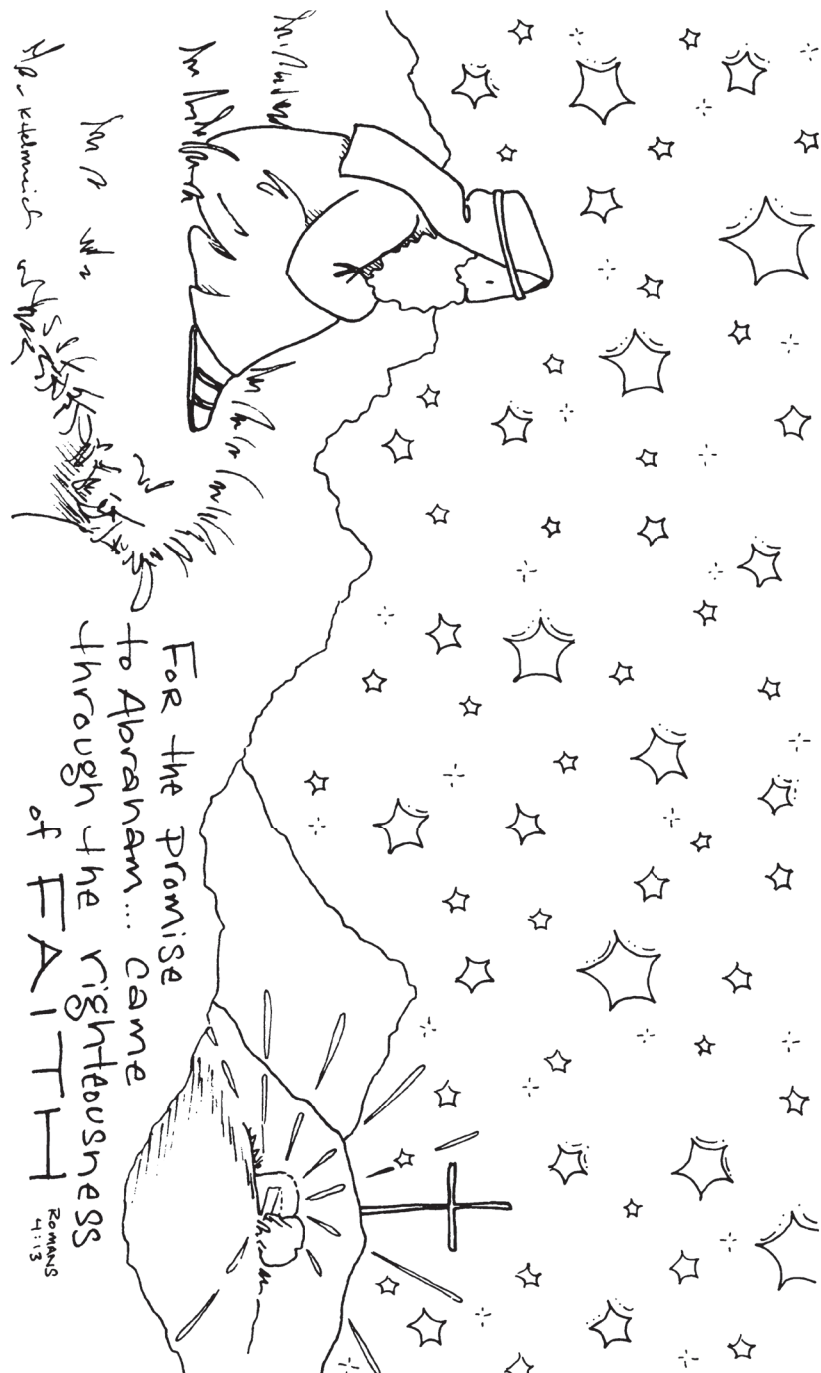 FOR the promise
to Abraham... came
through the righteousness
of FAITH
ROMANS
4:13